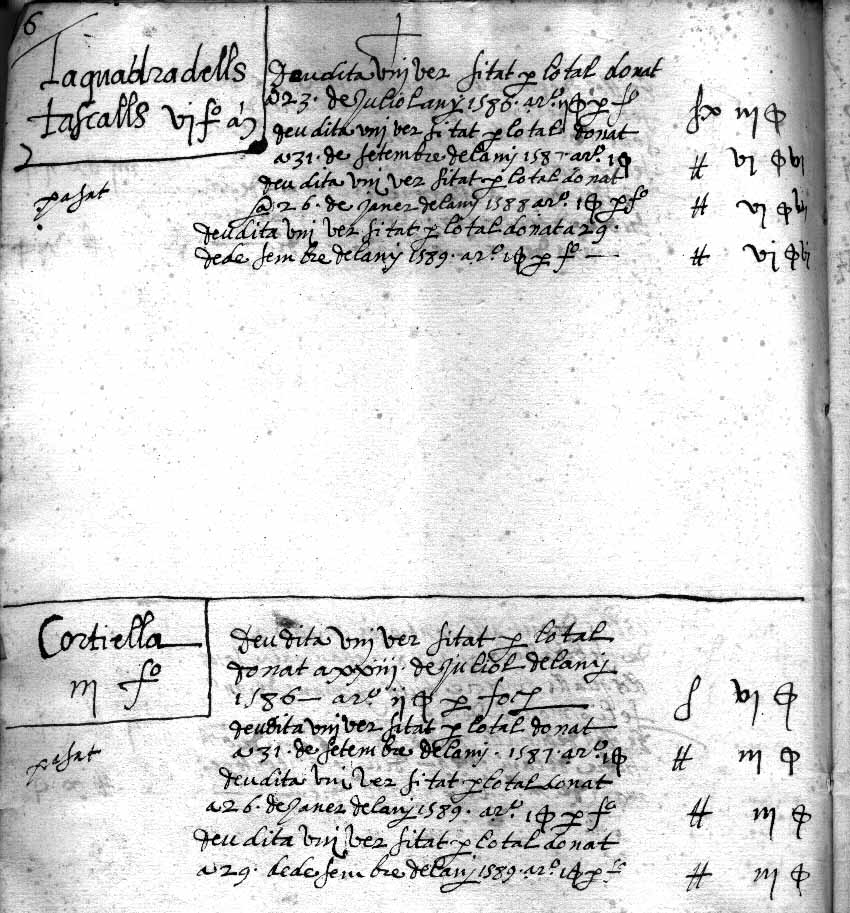 6
La quadra dells
tascalls vi fo
deu dita vniversitat p lo tal donat
a 23 de Juliol any 1586 a ro ii p fo
deu dita vniversitat p lo tal donat
a 31 de setembre del any 1587 a ro i
deu dita vniversitat p lo tal donat
a 26 de Janer del any 1588 a ro i p fo
deu dita vniversitat p lo tal donat a 29
de desembre del any 1589 a ro i p fo
pasat
Cortiella
iii fo
deu dita vniversitat p lo tal
donat a xxiii de Juliol del any
1586 a ro ii p foch
deu dita vniversitat p lo tal donat
a 31 de setembre del any 1587 a ro i
deu dita vniversitat p lo tal donat
a 26 de Janer del any 1589 a ro i p fo
deu dita vniversitat p lo tal donat
a 29 de desembre del any 1589 a ro i p fo
vi
iii
iii
iii
pasat